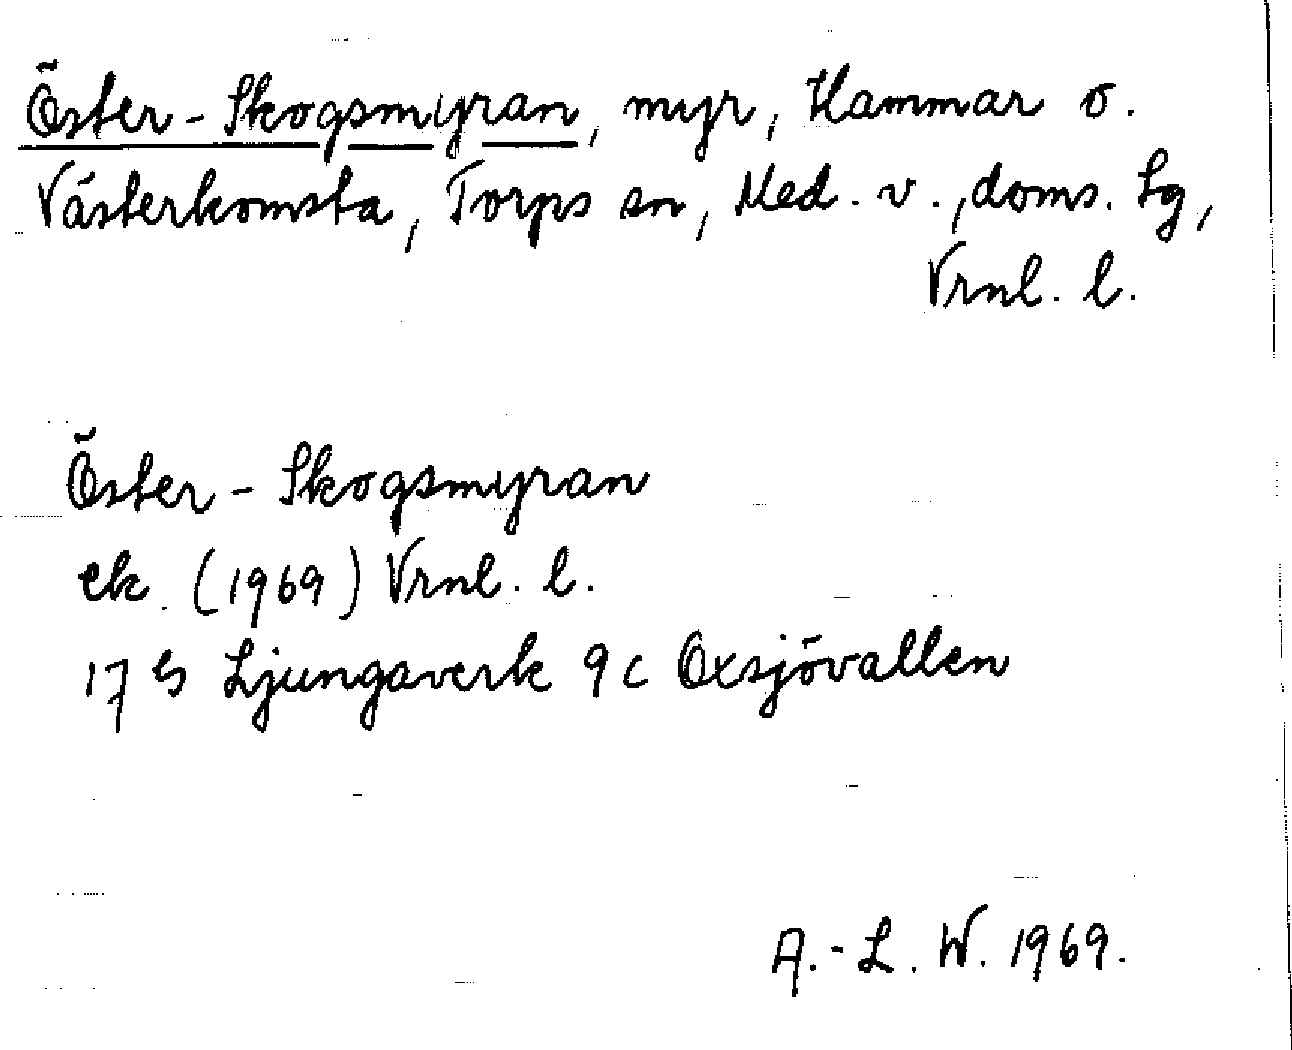 Öster-Skogsmyran, myr, Hammar o.
Västerkomsta, Torps sn, Med. v., doms. tg,
Vrnl. l.
Öster-Skogsmyran
ek. (1969) Vrnl. l.
17 G Ljungaverk 9 c Oxsjövallen
A.-L. W. 1969.